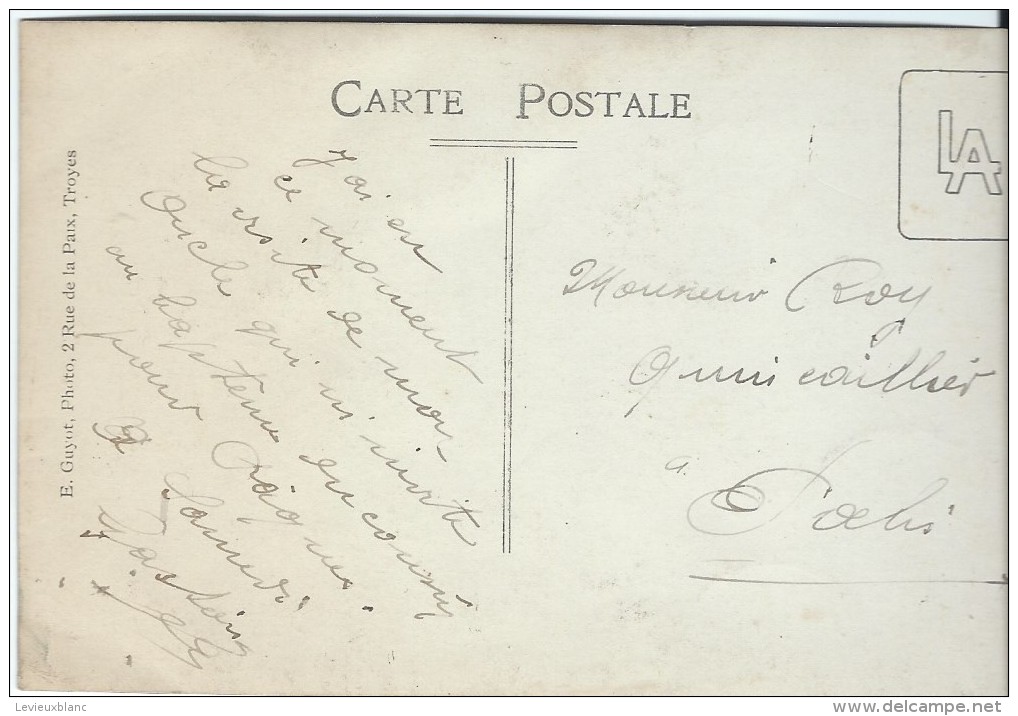 CARTE POSTALE
LA
E. Guyot, Photo, 2 Rue de la Paix, Troyes
J'ai en
ce moment
la visite de mon
oncle qui m'invite
au baptême du cousin
pour Pâques.
A Samedi.
Monsieur Roy
Quincaillier
a
Palis
Levieuxblanc
www.delcampe.net